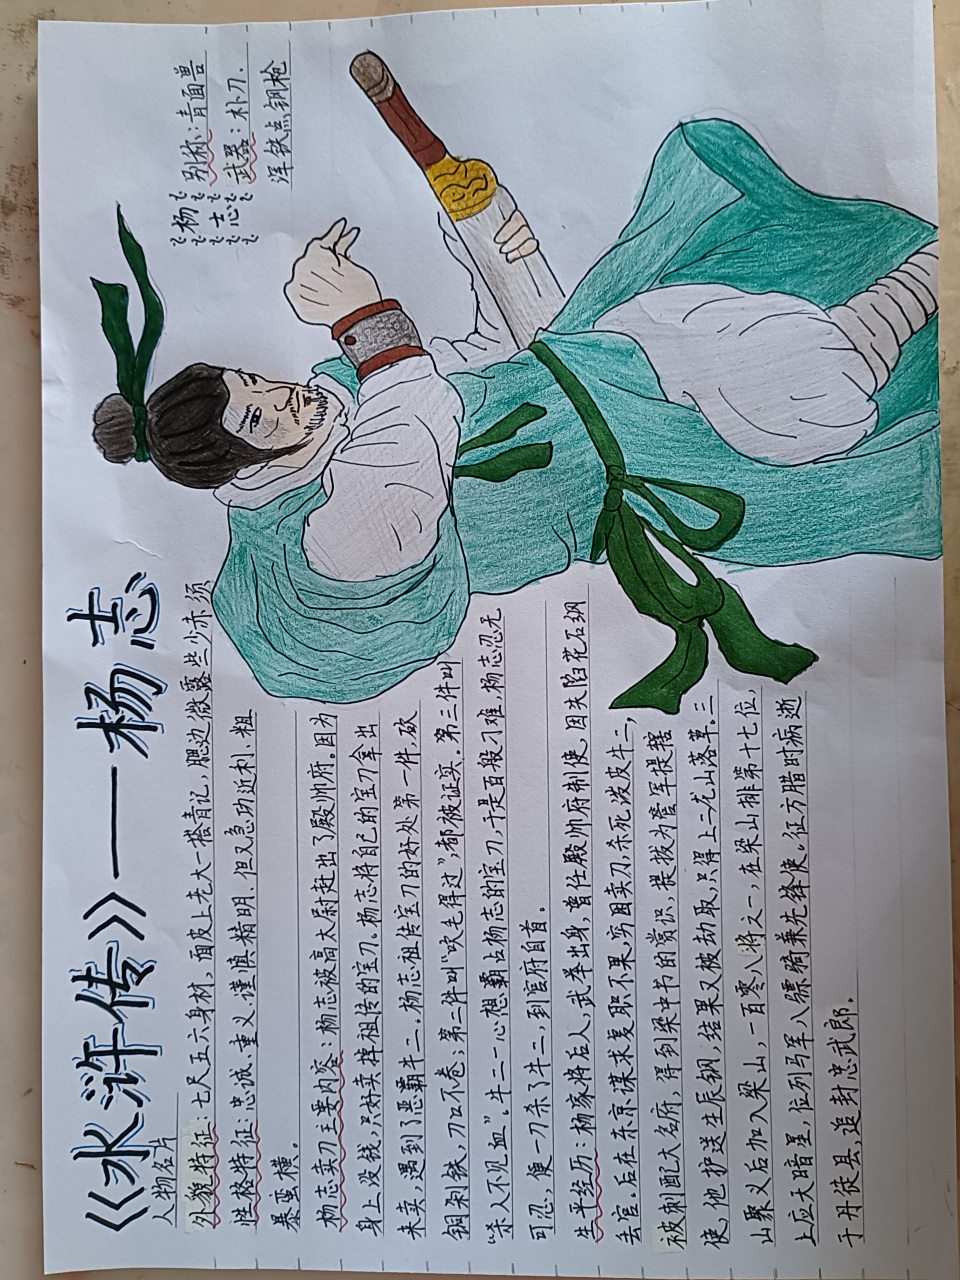 《水浒传》——杨志
杨志
别称：青面兽
武器：朴刀、
浑铁点钢枪
人物名片
外貌特征：七尺五六身材，面皮上老大一搭青记，腮边微露些少赤须
性格特征：忠诚、重义、谨慎精明、但又急功近利、粗
暴蛮横。
杨志卖刀主要内容：杨志被高太尉赶出了殿帅府。因为
身上没钱，只好卖掉祖传的宝刀。杨志将自己的宝刀拿出
来卖，遇到了恶霸牛二。杨志祖传宝刀的好处第一件，砍
铜剁铁，刀口不卷；第二件叫“吹毛得过”，都被证实。第三件叫
“杀人不见血”。牛二一心想霸占杨志的宝刀，于是百般刁难，杨志忍无
可忍，便一刀杀了牛二，到官府自首。
生平经历：杨家将后人，武举出身，曾任殿帅府制使，因失陷花石纲
丢官。后在东京谋求复职不果，穷困卖刀，杀死泼皮牛二，
被刺配大名府，得到梁中书的赏识，提拔为管军提辖
使，他护送生辰纲，结果又被劫取，只得上二龙山落草。三
山聚义后加入梁山，一百零八将之一，在梁山排第十七位，
上应天暗星，位列马军八骠骑兼先锋使。征方腊时病逝
于丹徒县，追封忠武郎。